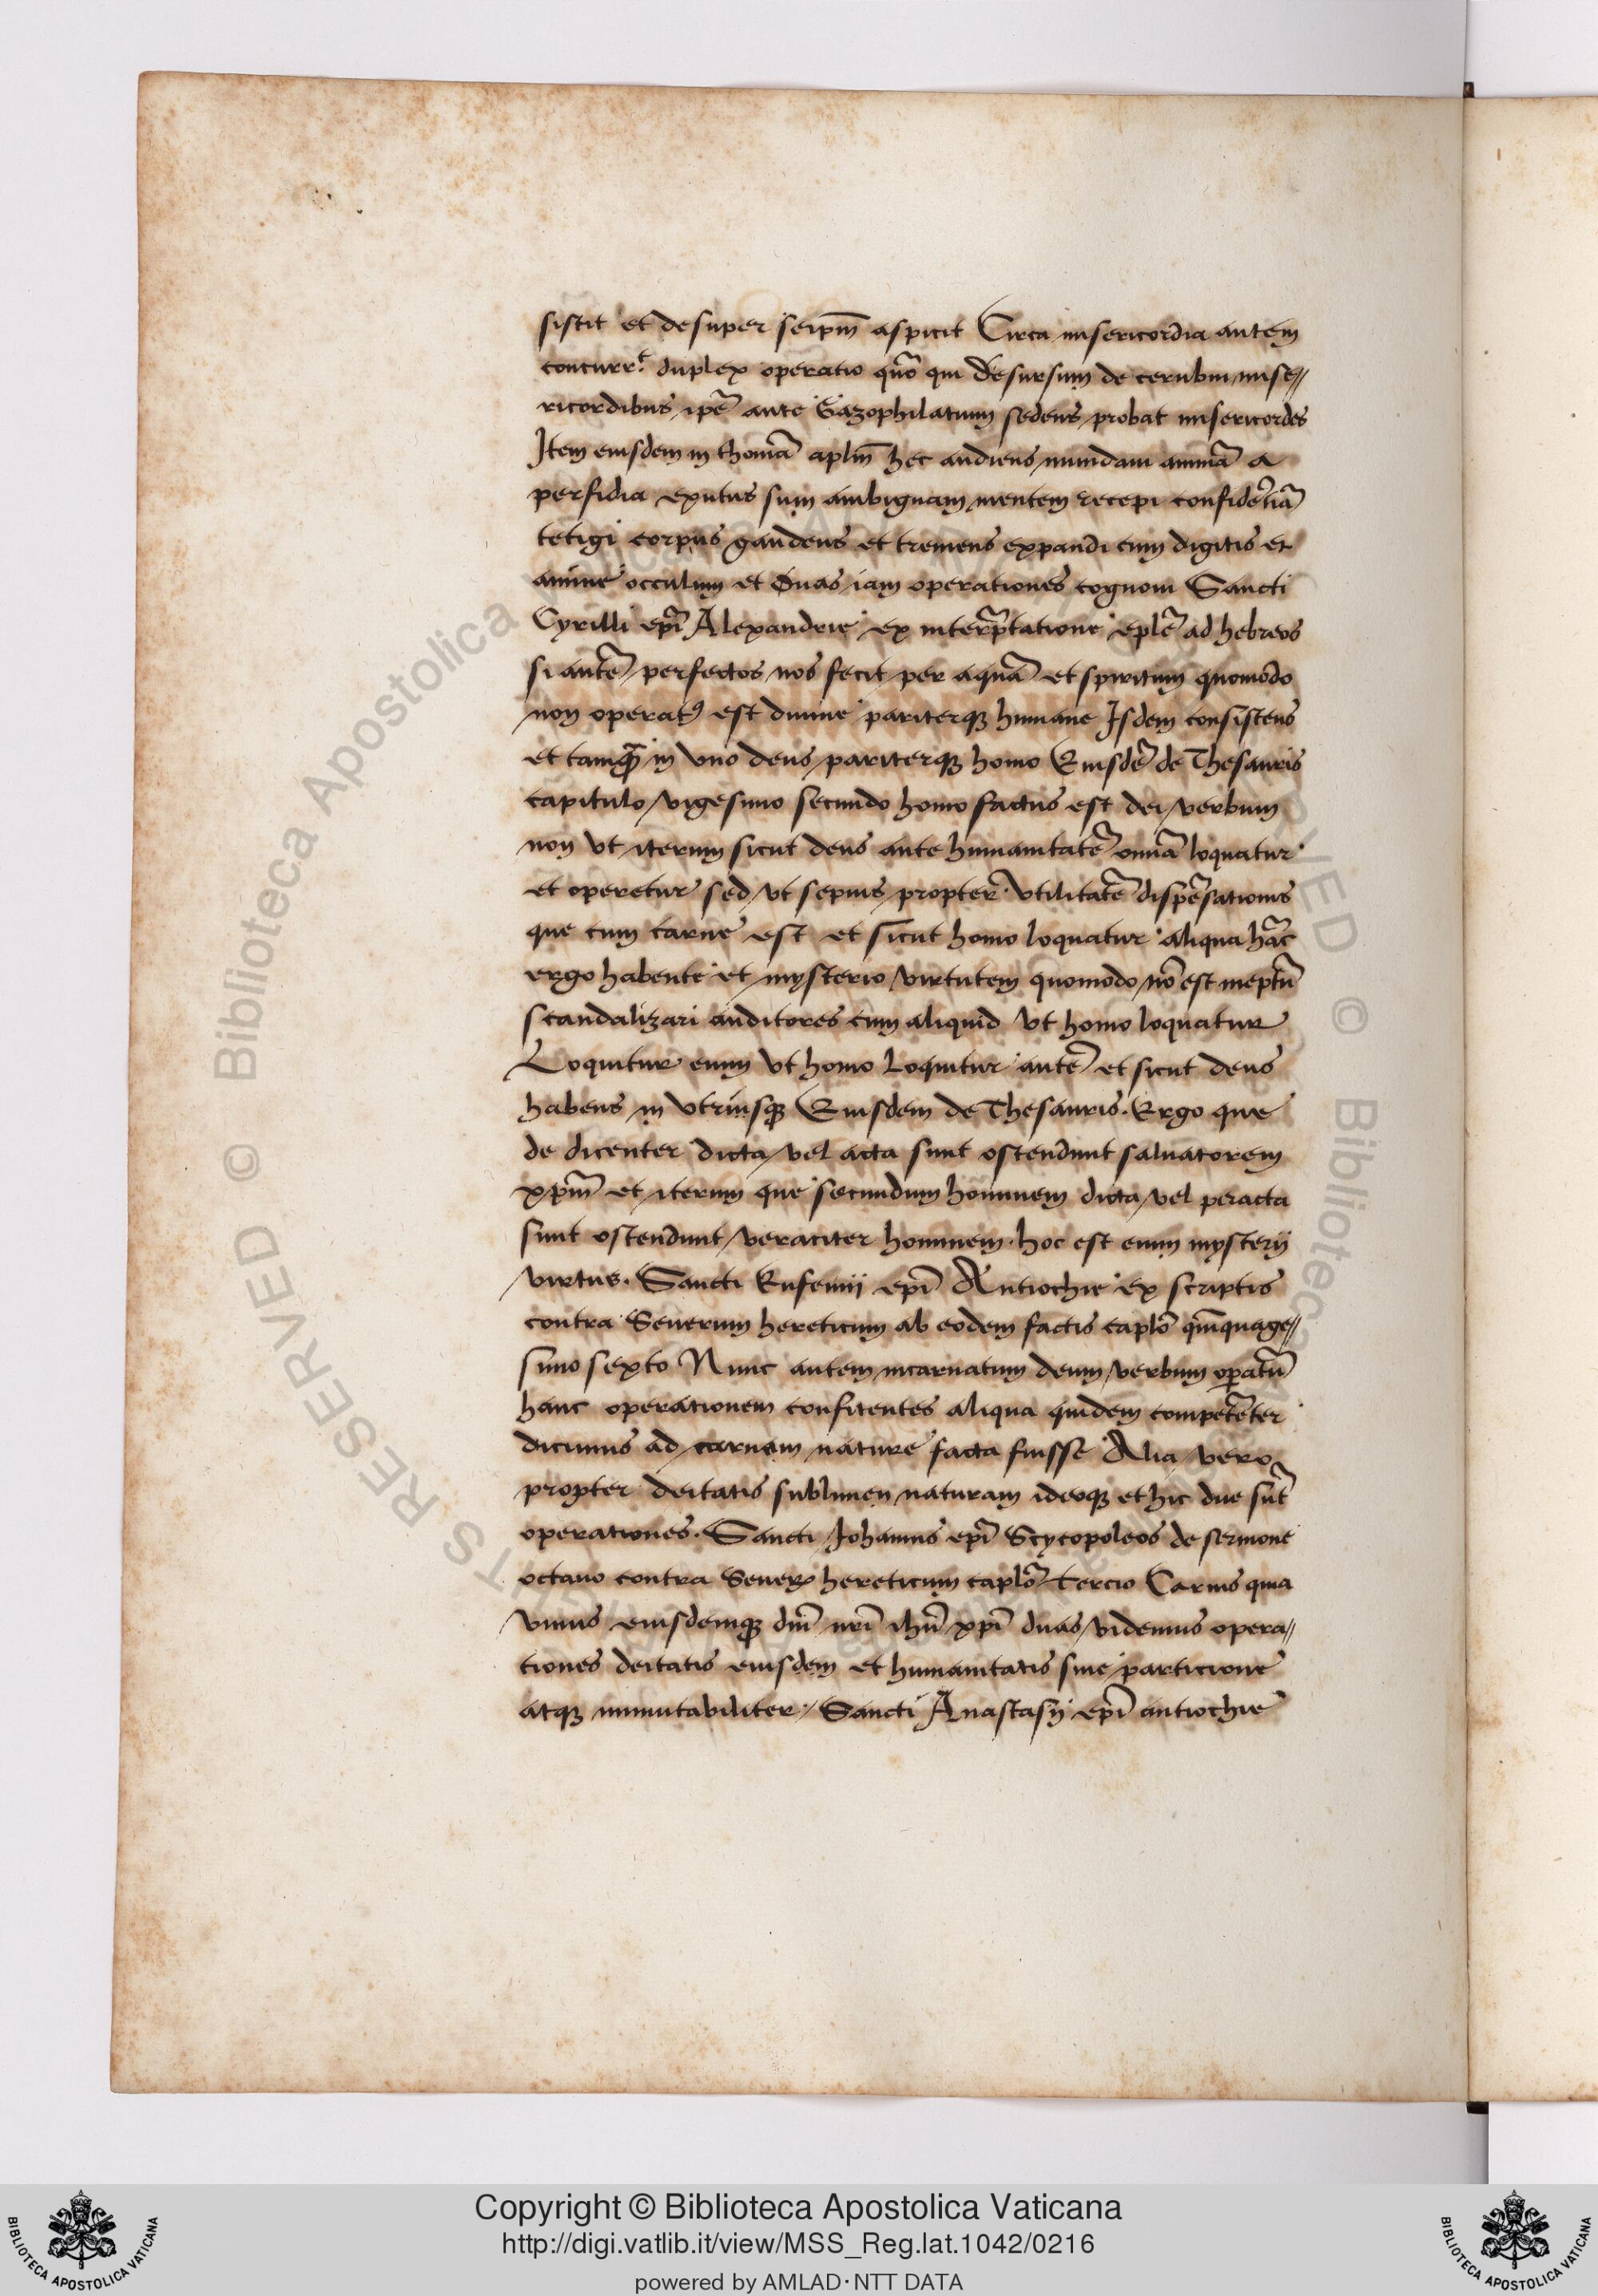 sistit et desuper seipm̃ aspicit Circa misericordia autem
concurrᵗ duplex operatio quõ qui desursum de cerubin mise//
ricordibus ipẽ ante Gazophilatium sedens probat misericordes
Item eiusdem in thomã aplm̃ hec audiens mundam animã a
perfidia exutus sum ambiguam mentem recepi confidẽtiã
tetigi corpus gaudens et tremens expandi cum digitis et
anime occulum et duas iam operationes cognoui Sancti
Cyrilli epĩ Alexandrie ex interp̃tatione eplẽ ad hebreos
si autẽ perfectos nos fecit per aquã et spiritum quomodo
non operatꝰ est diuine pariterqꝫ humane Isdem consistens
et tamq̃ in vno deus pariterqꝫ homo Eiusdẽ de Thesauris
capitulo vigesimo secundo homo factus est dei verbum
non vt iterum sicut deus ante humanitatẽ omiã loquatur
et operetur sed vt sepius propter vtilitatẽ dispẽsationis
que cum carne est et sicut homo loquatur aliqua hãc
ergo habente et mysterio virtutem quomodo nõ est ineptũ
scandalizari auditores cum aliquid vt homo loquatur
Loquitur enim vt homo Loquitur autẽ et sicut deus
habens in vtriusqꝫ Eiusdem de Thesauris. Ergo que
de dicenter dicta vel acta sunt ostendunt saluatorem
xpm̃ et iterum que secundum hominem dicta vel peracta
sunt ostendunt veraciter hominem. hoc est enim mysterij
virtus. Sancti Eufemij epĩ Antiochie ex scriptis
contra Seuerum hereticum ab eodem factis caplõ qũiquage//
simo sexto Nunc autem incarnatum deum verbum oꝑatũ
hanc operationem confitentes aliqua quidem competẽter
dicimus ad carnem nature facta fuisse Alia vero
propter deitatis sublimen naturam ideoqꝫ et hic due sũt
operationes. Sancti Johannis epĩ Scycopoleos de sermone
octauo contra Seuerꝫ hereticum caplõ tercio Carnis quia
vnius eiusdemqꝫ dnĩ nrĩ ihũ xpĩ duas videmus opera//
tiones deitatis eiusdem et humanitatis sine particione
atqꝫ immutabiliter / Sancti Anastasij epĩ antiochie
Copyright © Biblioteca Apostolica Vaticana
http://digi.vatlib.it/view/MSS_Reg.lat.1042/0216
powered by AMLAD·NTT DATA